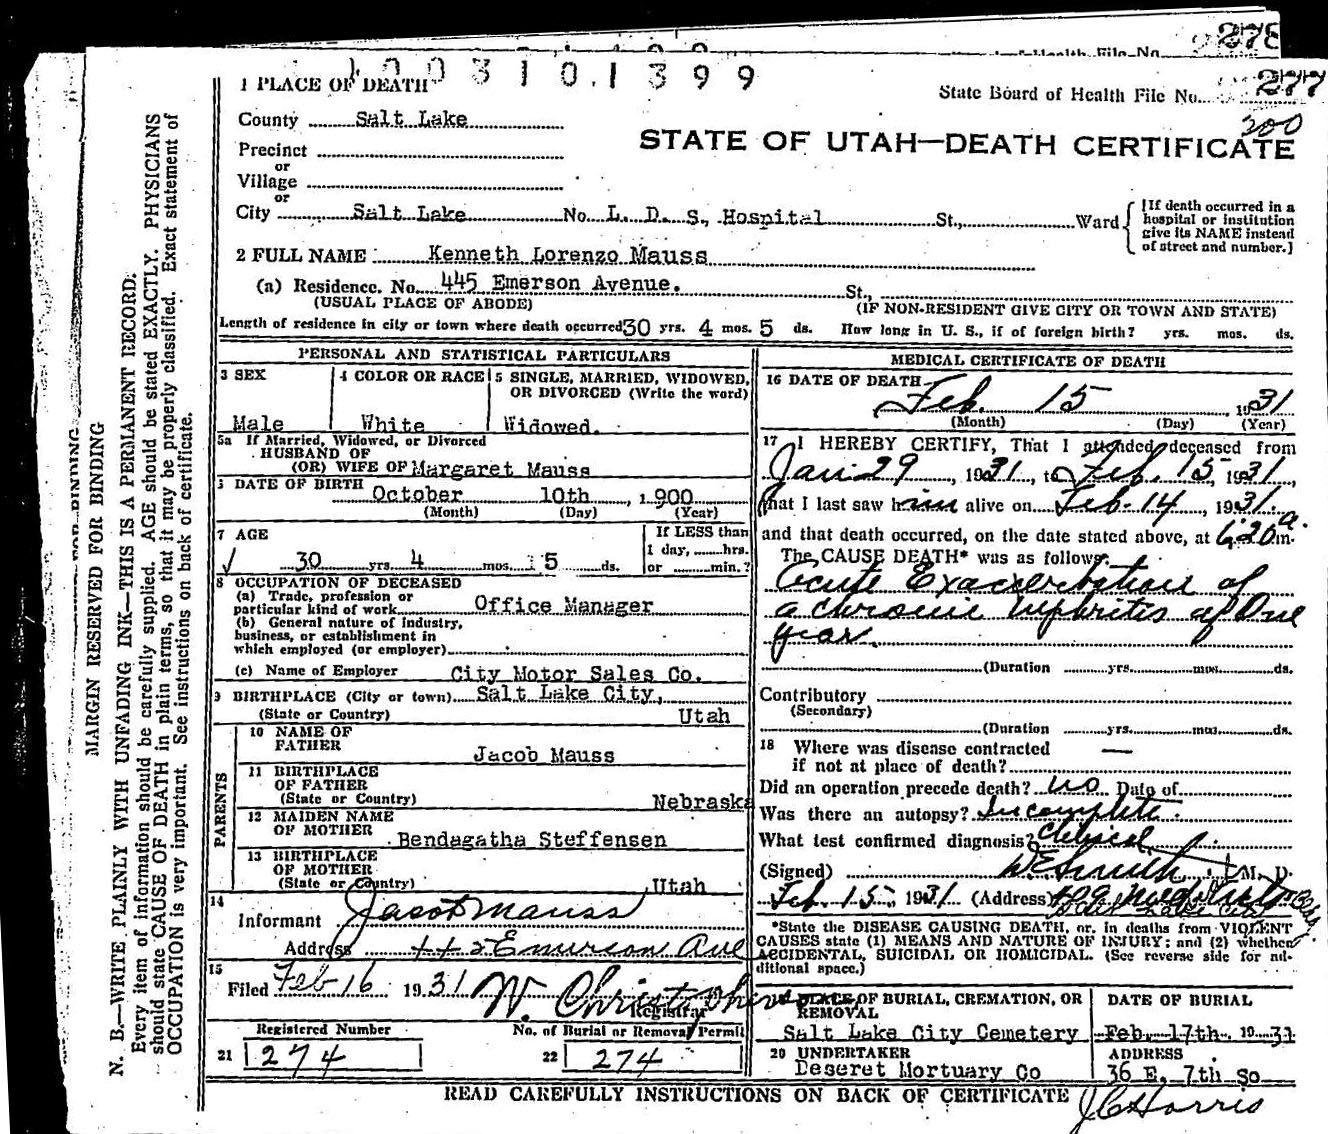 278
1003101399
State Board of Health File No. 277
300
1 PLACE OF DEATH
County Salt Lake
STATE OF UTAH—DEATH CERTIFICATE
Precinct
or
Village
or
City Salt Lake No. L. D. S. Hospital St., Ward
[If death occurred in a
hospital or institution
give its NAME instead
of street and number.]
2 FULL NAME Kenneth Lorenzo Mauss
(a) Residence. No. 445 Emerson Avenue. St.,
(USUAL PLACE OF ABODE) (IF NON-RESIDENT GIVE CITY OR TOWN AND STATE)
Length of residence in city or town where death occurred 30 yrs. 4 mos. 5 ds. How long in U. S., if of foreign birth? yrs. mos. ds.
PERSONAL AND STATISTICAL PARTICULARS
3 SEX
Male
4 COLOR OR RACE
White
5 SINGLE, MARRIED, WIDOWED,
OR DIVORCED (Write the word)
Widowed.
5a If Married, Widowed, or Divorced
HUSBAND OF
(OR) WIFE OF Margaret Mauss
DATE OF BIRTH
October 10th , 1900
(Month) (Day) (Year)
7 AGE
30 yrs. 4 mos. 5 ds.
If LESS than
1 day, hrs.
or min.?
8 OCCUPATION OF DECEASED
(a) Trade, profession or
particular kind of work Office Manager
(b) General nature of industry,
business, or establishment in
which employed (or employer)
(c) Name of Employer City Motor Sales Co.
9 BIRTHPLACE (City or town) Salt Lake City,
(State or Country) Utah
PARENTS
10 NAME OF
FATHER
Jacob Mauss
11 BIRTHPLACE
OF FATHER
(State or Country) Nebraska
12 MAIDEN NAME
OF MOTHER
Bendagatha Steffensen
13 BIRTHPLACE
OF MOTHER
(State or Country) Utah
14
Informant Jacob Mauss
Address 445 Emerson Ave
15
Filed Feb 16 1931 W. Christophers
Registrar
Registered Number No. of Burial or Removal Permit
21 274 22 274
MEDICAL CERTIFICATE OF DEATH
16 DATE OF DEATH
Feb. 15 , 1931
(Month) (Day) (Year)
17 I HEREBY CERTIFY, That I attended deceased from
Jan 29, 1931, to Feb. 15, 1931,
that I last saw him alive on Feb. 14, 1931.
and that death occurred, on the date stated above, at 6:20 a. m.
The CAUSE DEATH* was as follows:
Acute Exacerbation of
a chronic nephritis of One
year
(Duration yrs. mos. ds.
Contributory
(Secondary)
(Duration yrs. mos. ds.
18 Where was disease contracted —
if not at place of death?
Did an operation precede death? no Date of
Was there an autopsy? Incomplete
What test confirmed diagnosis? Clinical
(Signed) W E Smith M. D.
Feb. 15, 1931 (Address)
Salt Lake City
*State the DISEASE CAUSING DEATH, or, in deaths from VIOLENT
CAUSES state (1) MEANS AND NATURE OF INJURY: and (2) whether
ACCIDENTAL, SUICIDAL OR HOMICIDAL. (See reverse side for ad-
ditional space.)
PLACE OF BURIAL, CREMATION, OR
REMOVAL
Salt Lake City Cemetery
DATE OF BURIAL
Feb. 17th. 1931
20 UNDERTAKER
Deseret Mortuary Co
ADDRESS
36 E. 7th So
READ CAREFULLY INSTRUCTIONS ON BACK OF CERTIFICATE
J C Harris
MARGIN RESERVED FOR BINDING
N. B.—WRITE PLAINLY WITH UNFADING INK—THIS IS A PERMANENT RECORD.
Every item of information should be carefully supplied. AGE should be stated EXACTLY. PHYSICIANS
should state CAUSE OF DEATH in plain terms, so that it may be properly classified. Exact statement of
OCCUPATION is very important. See instructions on back of certificate.